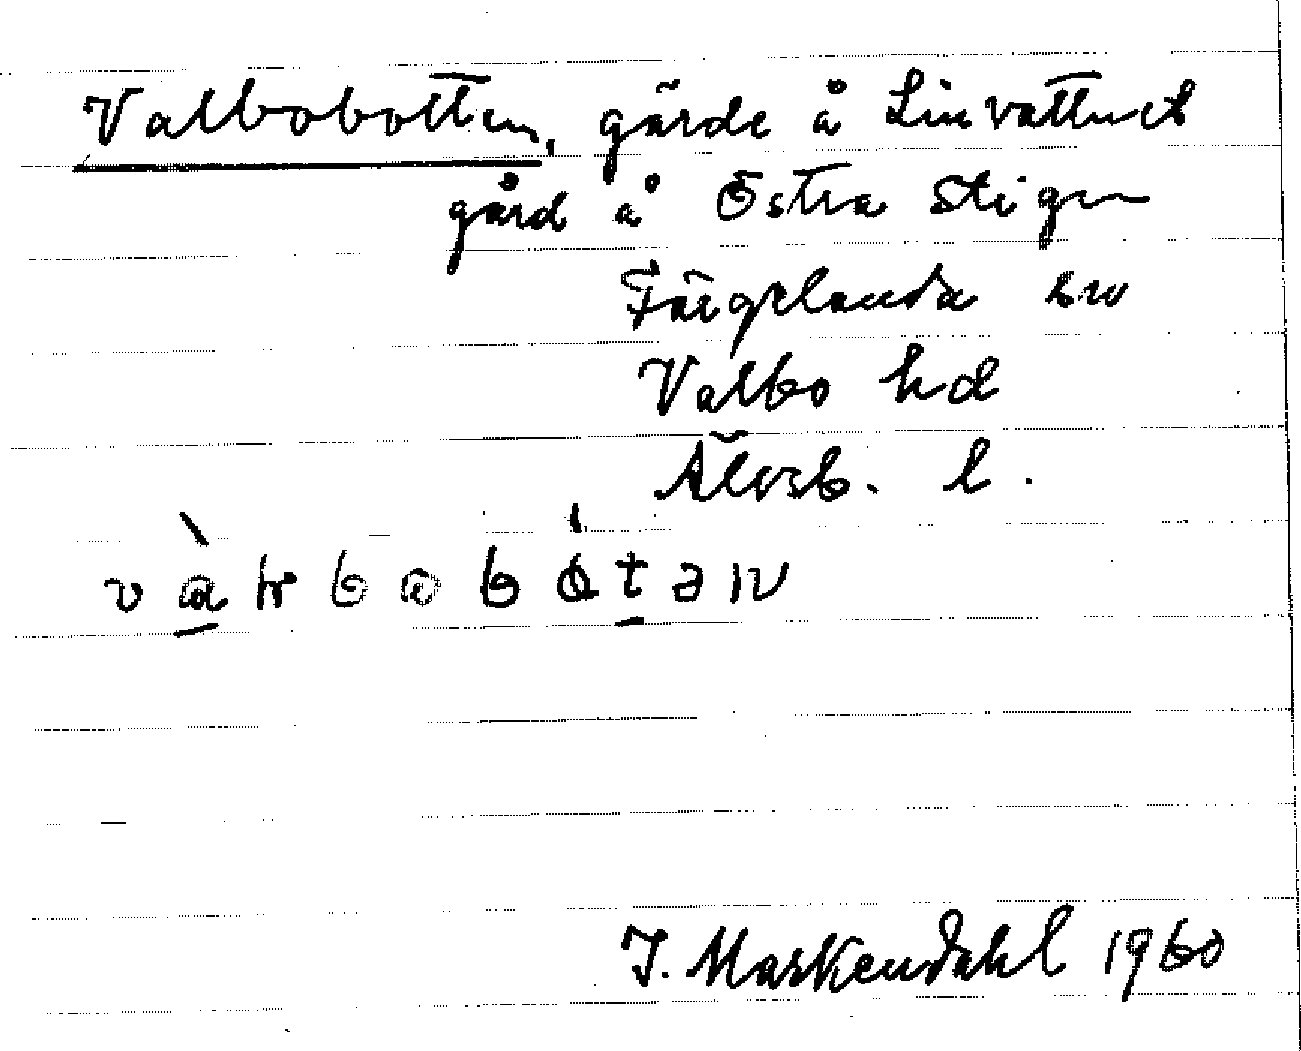 Valbobotten, gärde å Linvattnet
gård å Östra Stigen
Färgelanda sn
Valbo hd
Älvsb. l.
J. Markendahl 1960